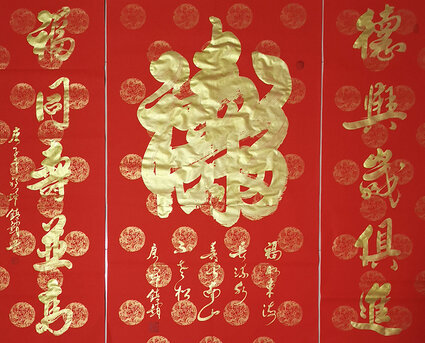 德與歲俱進
福如東海
長流水
壽比南山
不老松
福同壽並高